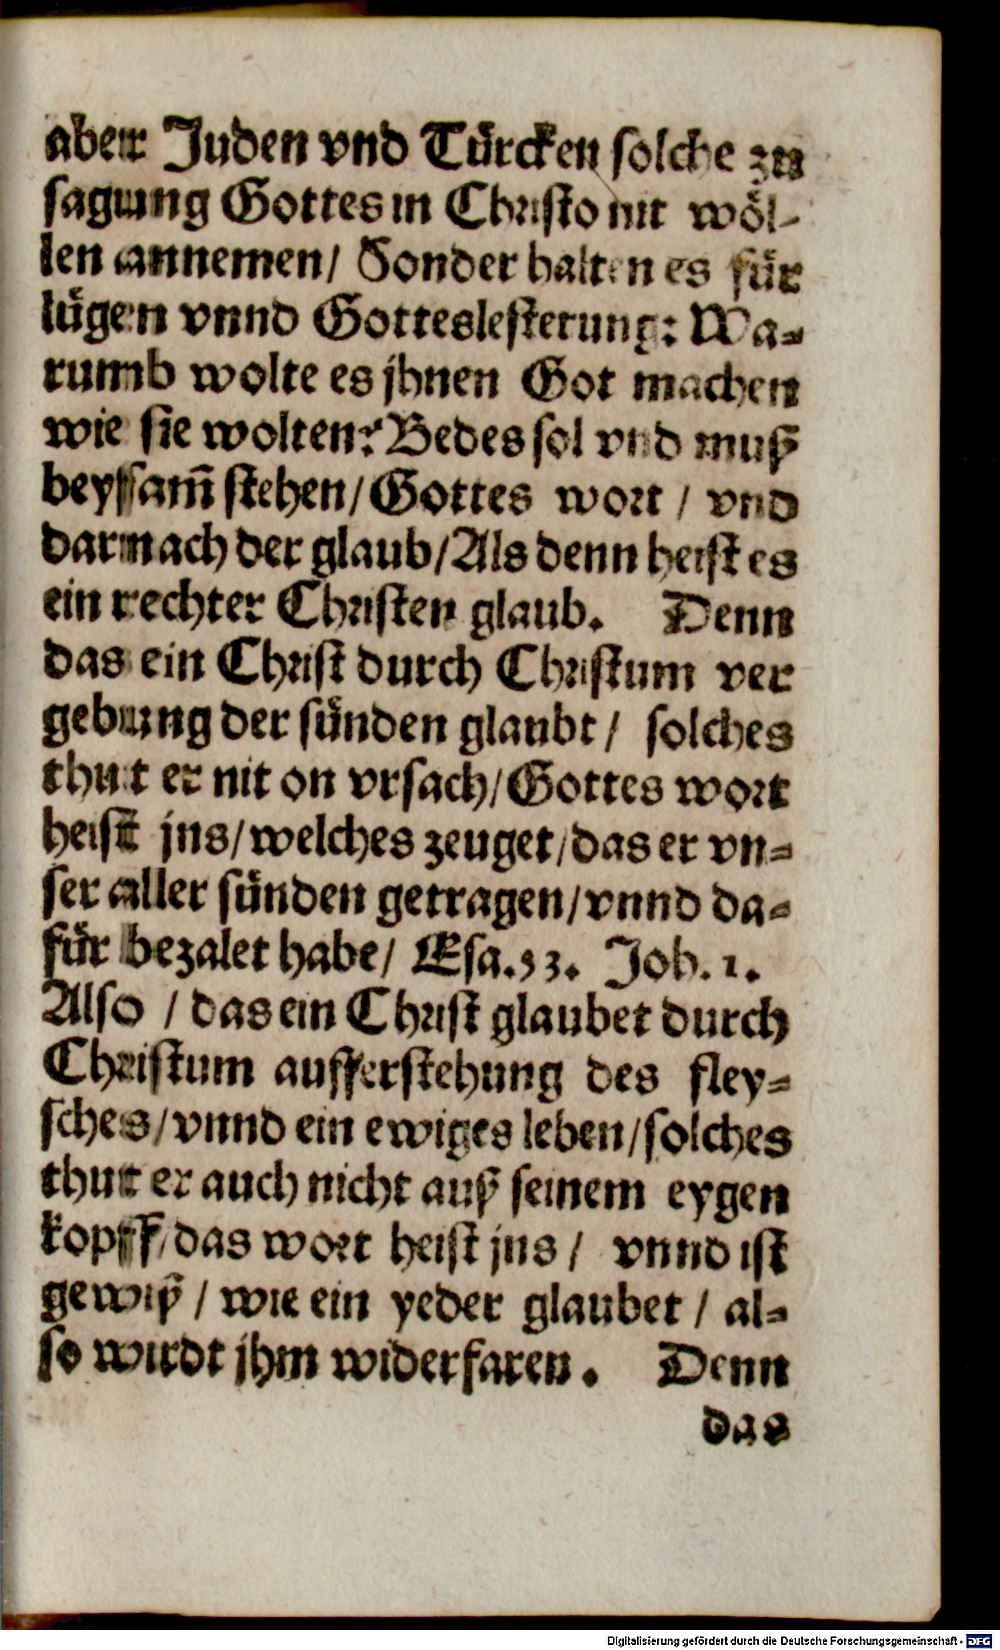 aber Juden vnd Türcken solche zu
sagung Gottes in Christo nit wöl-
len annemen/ Sonder halten es für
lügen vnnd Gotteslesterung: Wa-
rumb wolte es jhnen Got machen
wie sie wolten? Bedes sol vnd muß
beyssam̃ stehen/ Gottes wort / vnd
darnach der glaub/ Als denn heist es
ein rechter Christen glaub. Denn
das ein Christ durch Christum ver
gebung der sünden glaubt / solches
thut er nit on vrsach/ Gottes wort
heist jns/ welches zeuget/ das er vn-
ser aller sünden getragen/ vnnd da-
für bezalet habe/ Esa. 53. Joh. 1.
Also / das ein Christ glaubet durch
Christum aufferstehung des fley-
sches/ vnnd ein ewiges leben/ solches
thut er auch nicht auß seinem eygen
kopff/ das wort heist jns / vnnd ist
gewiß / wie ein yeder glaubet / al-
so wirdt jhm widerfaren. Denn
das
Digitalisierung gefördert durch die Deutsche Forschungsgemeinschaft - DFG